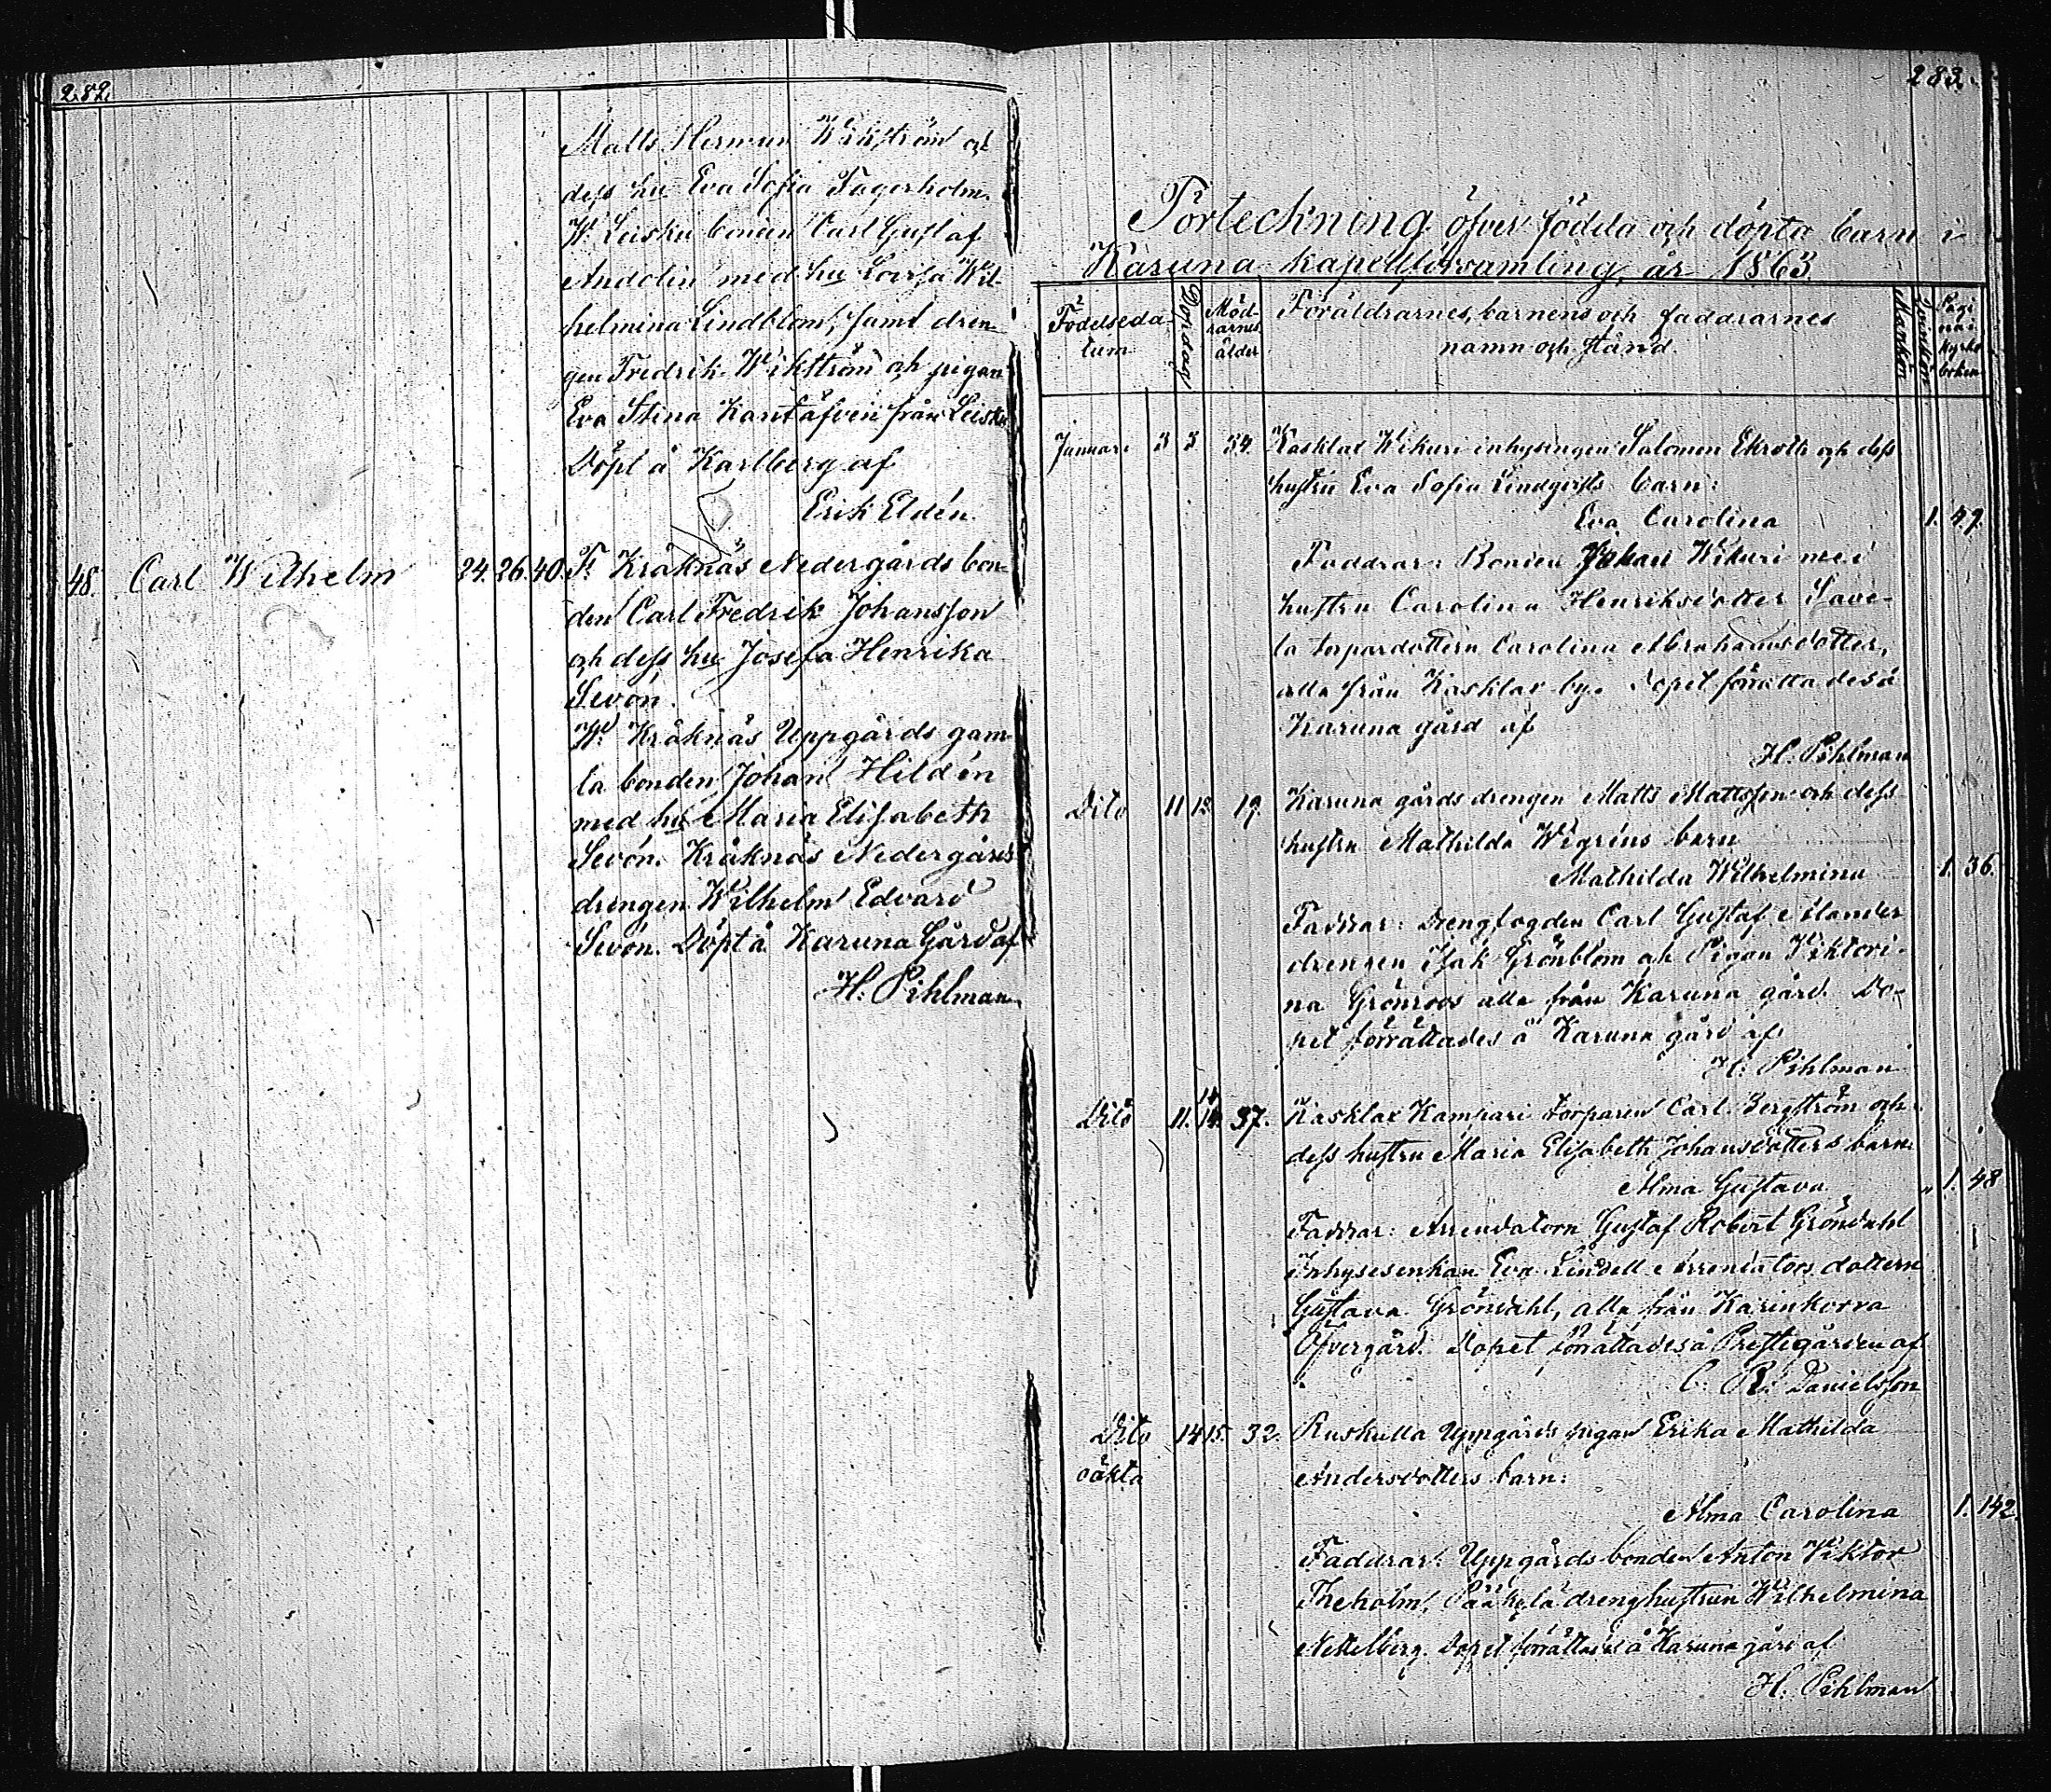 282.
Matts Herman Wikström och
dess hu. Eva Sofia Fagerholm.
W. Leisku bonden Carl Gustaf
Andelin med hu Lovisa Wil-
helmina Lindblom, samt dren-
gen Fredrik Wikström och pigan
Eva Stina Kantåfvein från Leisku
Döpt å Karlberg af
Erik Eldén.
48. Carl Wilhelm 24. 26. 40. F. Kråknäs Nedergårds bon-
den Carl Fredrik Johansson
och dess hu Josefa Henrika
Sevón.
W. Kråknäs Uppgårds gam-
la bonden Johan Hildén
med hu Maria Elisabeth
Sevón. Kråknäs Nedergårds
drengen Wilhelm Edvard
Sevón. Döpt å Karuna Gård af
H. Pihlman.
283.
Förteckning öfver födda och döpta barn i
Karuna kapellförsamling, år 1863
Födelseda-
tum
Dopdag
Möd-
rarnes
ålder
Föräldrarnes, barnens och faddrarnes
namn och stånd.
Mankön
Qvinkön
Pagi-
na i
kyrko
boken
Januari 3 5 34. Kasklax Wikuri inhysingen Salomon Ekroth och dess
hustru Eva Sofia Lindqvists barn:
Eva Carolina 1. 49.
Faddrar: Bonden Johan Wikuri med
hustru Carolina Henriksdotter Save-
la torpardottern Carolina Abrahamsdotter,
alla från Kasklax by. Dopet förrättades å
Karuna gård af
H. Pihlman
Dito 11 12 19. Karuna gårds drengen Matts Mattsson och dess
hustru Mathilda Wigréns barn
Mathilda Wilhelmina 1. 36.
Faddrar: Drengfogden Carl Gustaf Ålander
drengen Isak Grönblom och Pigan Viktori-
na Grönroos alla från Karuna gård. Do-
pet förrättades å Karuna gård af
H. Pihlman
Dito 11. 14. 37. Kasklax Kampari torparen Carl Bergström och
dess hustru Maria Elisabeth Johansdotters barn.
Alma Gustava " 1. 48
Faddrar: Arrendatorn Gustaf Robert Gröndahl
Inhysesenkan Eva Lindell Arrendators dottern
Gustava Gröndahl, alla från Karinkorva
Öfvergård. Dopet förrättades å Prestegården af
C. R. Danielsson
Dito 14 15. 32. Ruskulla Uppgårds pigan Erika Mathilda
oäkta Andersdotters barn:
Alma Carolina 1. 142.
Faddrar: Uppgårds bonden Anton Viktor
Ekholm, Pääkylä drenghustrun Wilhelmina
Nettelberg. Dopet förrättades å Karuna gård af
H. Pihlman